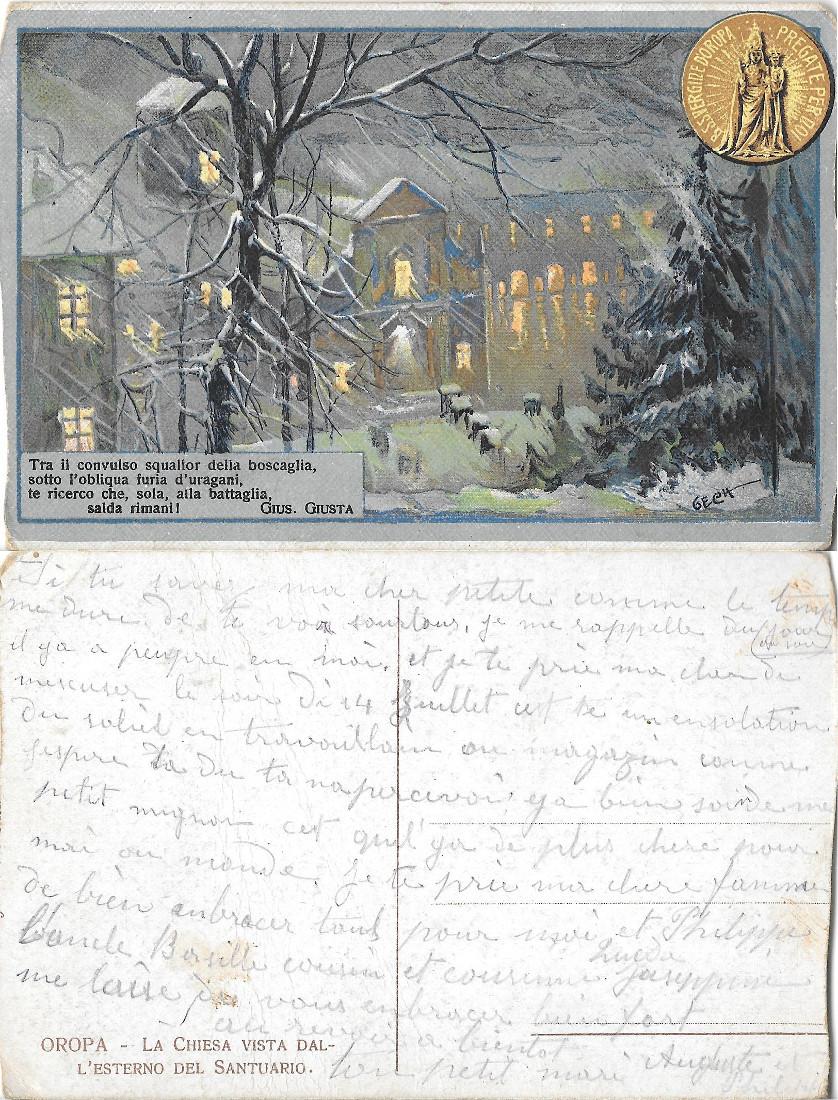 B. SS. VERGINE D'OROPA PREGATE PER NOI
Tra il convulso squallor della boscaglia,
sotto l'obliqua furia d'uragani,
te ricerco che, sola, alla battaglia,
salda rimani! GIUS. GIUSTA
GECH
Si tu saver ma cher petite comme le temp
me dure de te voir sourtous, je me rappelle du jour
il ya a peupre en moi, et je te prie ma cher de
mescuser le soir di 14 Juillet cet te un ensolation
du soliel en travaillain au magazin comme
jespere ta du ta napercivoi, ya bien soin de me
petit mignon cet quel'ya de plus chere pour
moi au monde. je te prie ma chere famme
de bien enbracer touts pour moi et Philippe
l'oncle Basille cousin et cousinne Joseppine
me laise je vous enbracer bien fort
au revoir a bientot
ton petit mari Auguste et
OROPA - LA CHIESA VISTA DAL-
L'ESTERNO DEL SANTUARIO.